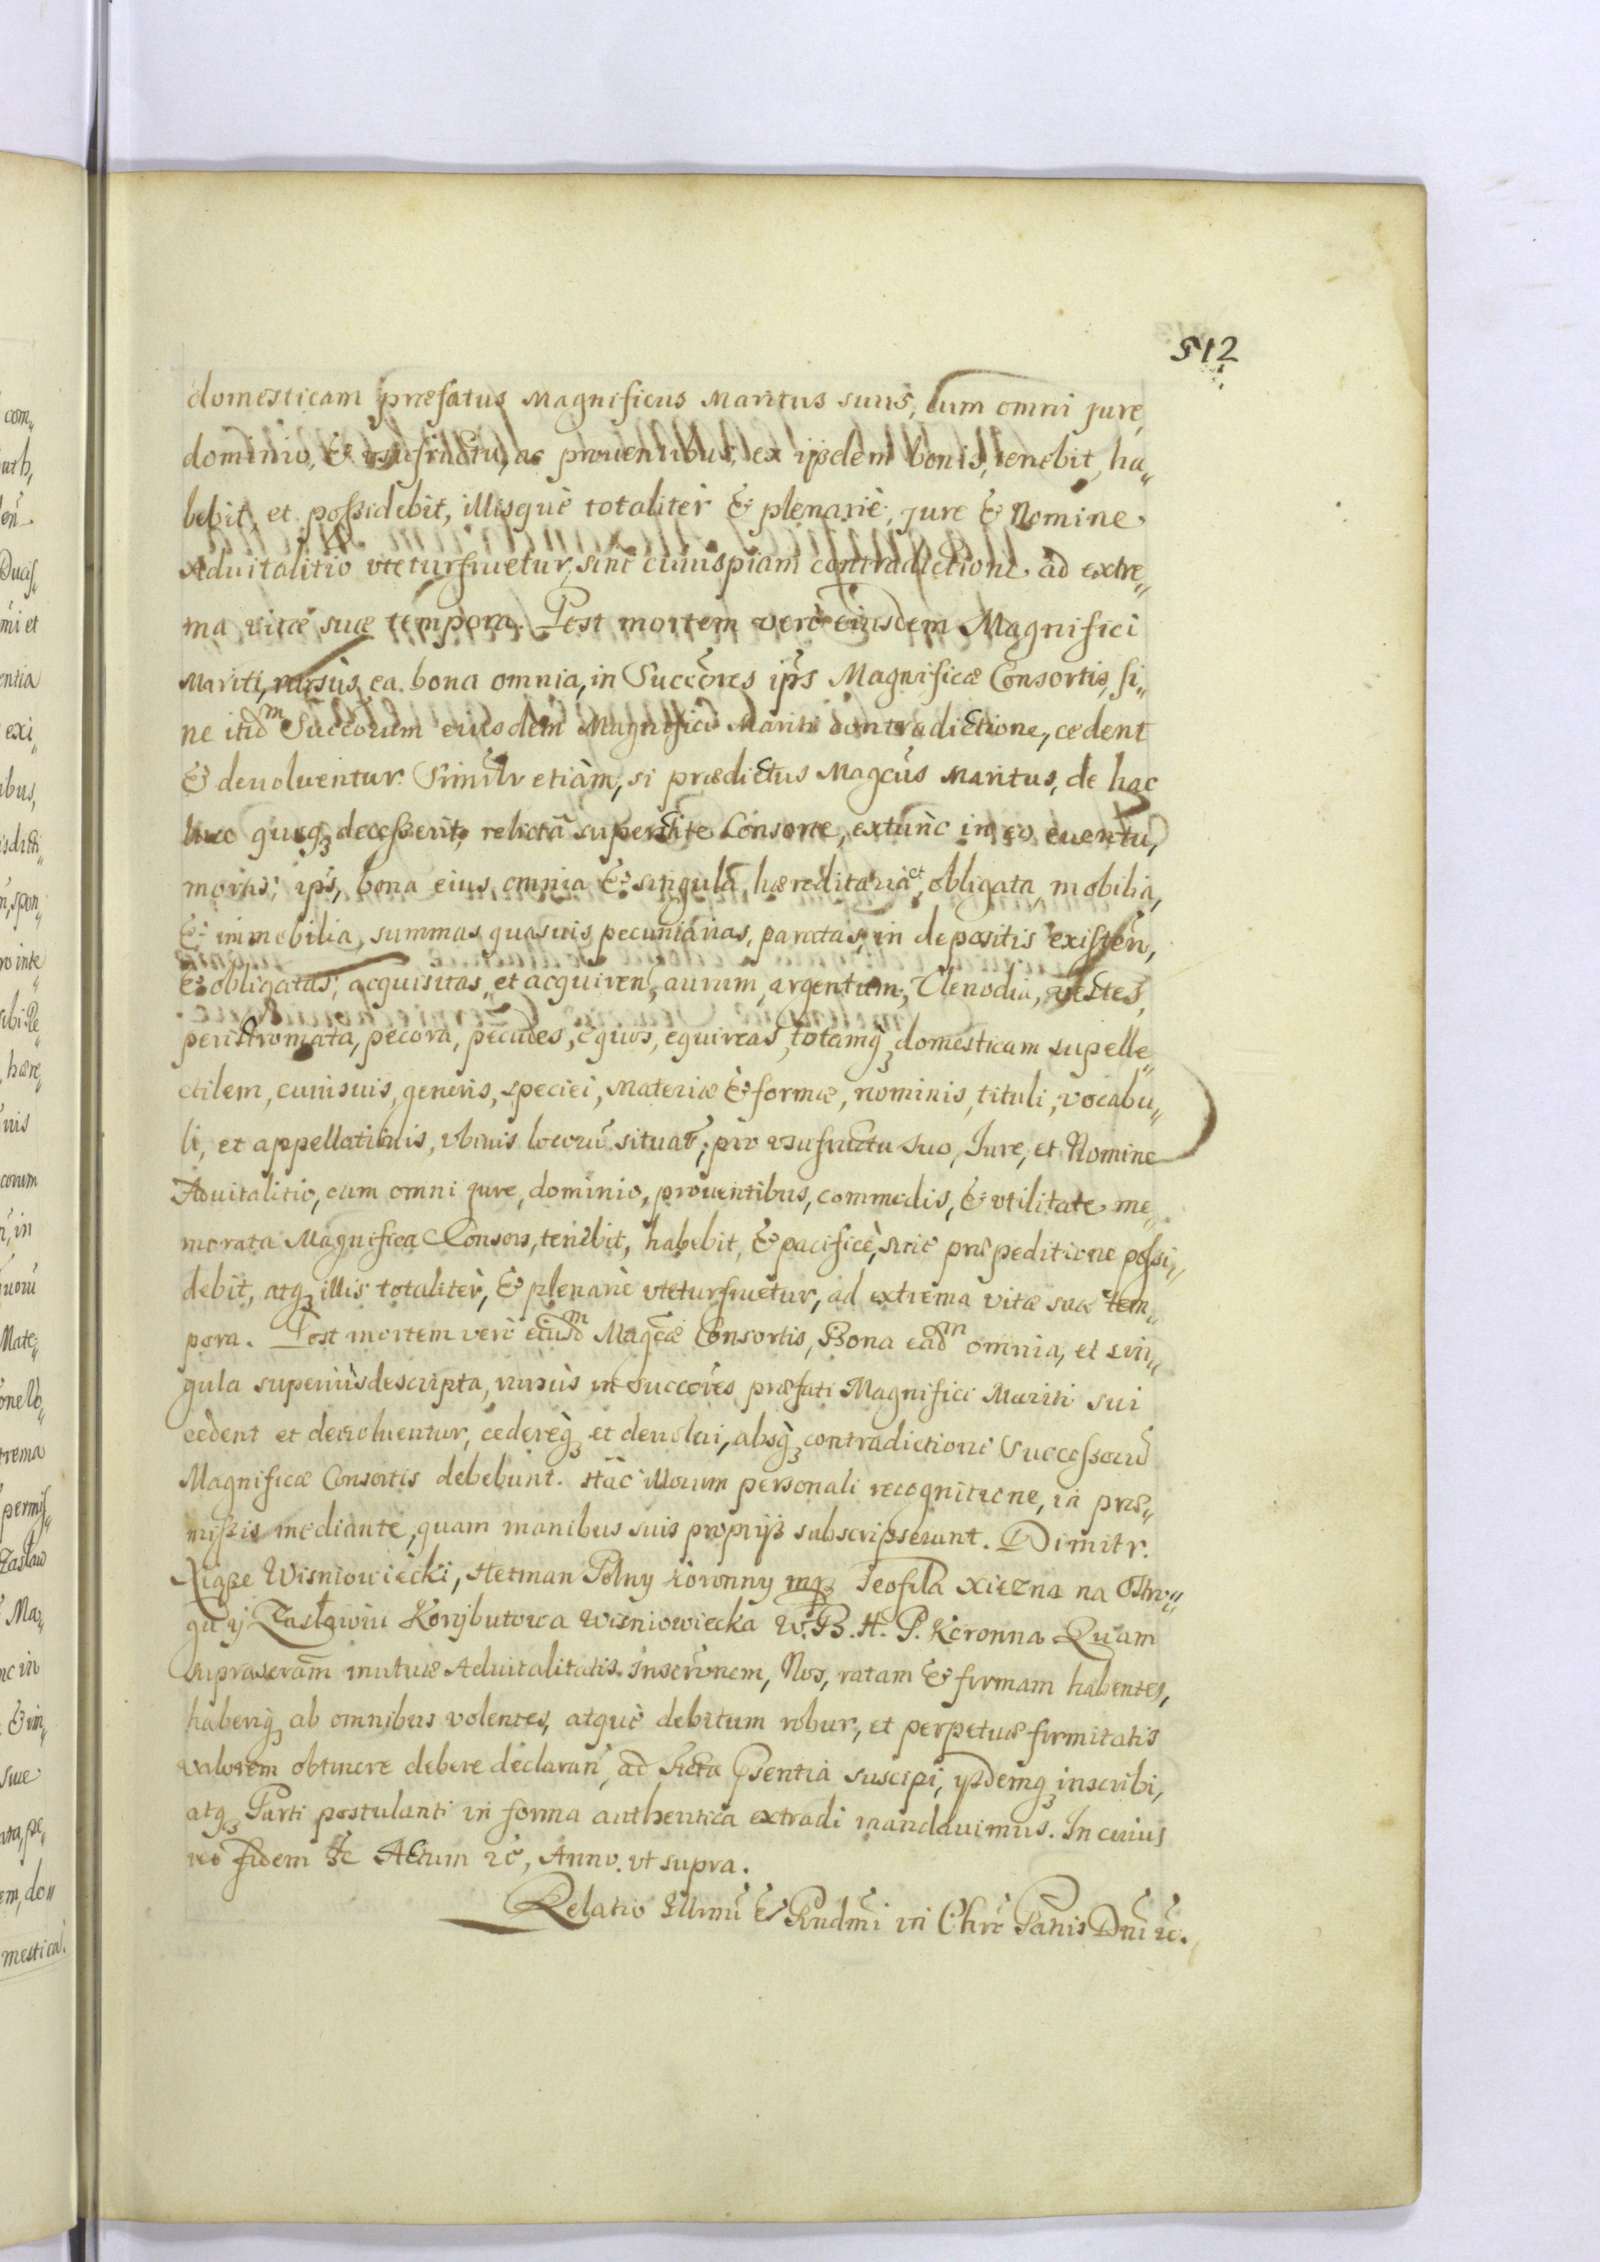 512
domesticam præfatus Magnificus Maritus suus, cum omni jure,
dominio, & vsufructu, ac prouentibus, ex ijsdem bonis, tenebit, ha„
bebit, et possidebit, illisquè totalitèr & plenariè, jure & Nomine
Aduitalitio vteturfruetur, sinè cuiuspiam contradictione ad extre„
ma vitæ suæ tempora. Post mortem verò eiusdem Magnifici
Mariti, rursùs ea bona omnia, in Succões ip̃s Magnificæ Consortis, si„
ne itid̃m Succorum eiusdem Magnifici Mariti contradictione, cedent
& deuoluentur. Simil̃r etiàm, si prædictus Magcũs Maritus, de hac
luce quoq; decesserit, relictâ superstite Consorte, extùnc in eo euentu,
mortis, ip̃s, bona eius omnia & singula, hæreditaria et obligata, mobilia,
& immobilia, summas quasuis pecuniarias, paratas, in depositis existen̄,
& obligatas, acquisitas, et acquiren̄, aurum, argentum, Clenodia, vestes,
peristromata, pecora, pecudes, equos, equireas, totamq; domesticam supelle„
ctilem, cuiusuis, generis, speciei, Materiæ & formæ, nominis, tituli, vocabu„
li, et appellationis, vbiuis locorũ situat̃, pro vsufructu suo, Jure, et Nomine
Aduitalitio, cum omni jure, dominio, prouentibus, commodis, & vtilitate me„
morata Magnifica Consors, tenebit, habebit, & pacificè, sinè præpeditione possi„
debit, atq; illis totalitèr, & plenariè vteturfruetur, ad extrema vitæ suæ tem„
pora. Post mortem verò eiusd̃m Magcæ Consortis, Bona ead̃m omnia, et sin„
gula superiùsdescripta, rursùs in succões præfati Magnifici Mariti sui
cedent et deuoluentur, cedereq; et deuolui, absq; contradictione Successorũ
Magnificæ Consortis debebunt. Hâc illorum personali recognitione, in præ„
missis mediante, quam manibus suis proprijs subscripserunt. Dimitr.
Xiąże Wisniowiecki, Hetman Polny Koronny mp; Teofila Xiezna na Ostro„
gu ÿ Zasławiu Korijbutowa Wisniowiecka W. B. H. P. Koronna Quam
suprascram̃ mutuæ Aduitalitatis Inscrõnem, Nos, ratam & firmam habentes,
haberiq; ab omnibus volentes, atquè debitum robur, et perpetuæ firmitatis
valorem obtinere debere declaran̄, ad Acta p̃sentia suscipi, ijsdemq; inscribi,
atq; Parti postulanti in forma authentica extradi mandauimus. In cuius
rei fidem &c Actum &c, Anno. vt supra.
Relatio Illrmi & Rndmi in Chro Patris Dni &c.